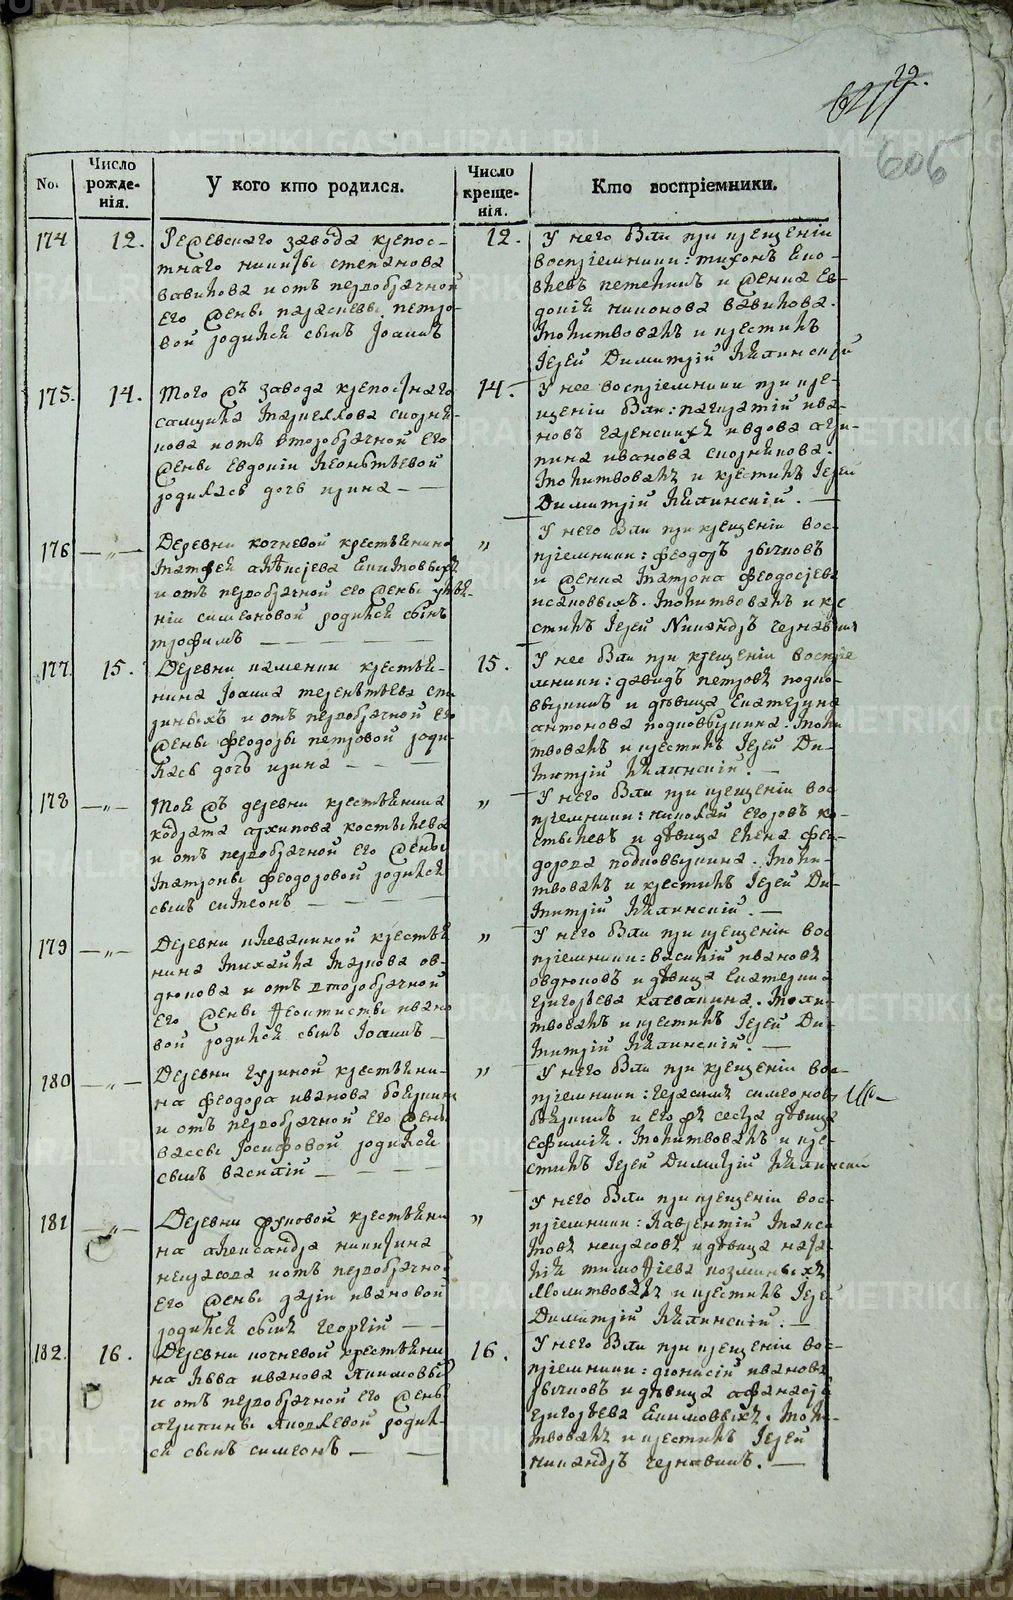 22.
606
No.
Число рожде-нія.
У кого кто родился.
Число креще-нія.
Кто воспріемники.
174
12.
Режевскаго завода крепос-
тнаго никиты степанова
вавилова и отъ первобрачной
его жены параскевы петро-
вой родился сынъ Іоаннъ
12.
У него были при крещеніи
воспріемники: тихонъ
и жена Ев-
докія вавилова.
Молитвовалъ и крестилъ
Іерей Димитрій Калинскій
175.
14.
Того жъ завода крепостнаго
самуила
и отъ второбрачной его
жены Евдокіи Леонтьевой
родилась дочь ирина — —
14.
У нее воспріемники при кре-
щеніи были: ива-
новъ и вдова агри-
пина иванова
Молитвовалъ и крестилъ Іерей
Димитрій Калинскій. —
176
— „ —
Деревни кочневой крестьянина
Матфея Екимовыхъ
и отъ первобрачной его жены
симеоновой родился сынъ
трофимъ — — —
„
У него были при крещеніи вос-
пріемники: феодоръ зычковъ
и жена Матрона феодосіева
исаковыхъ. Молитвовалъ и кре
стилъ Іерей Никандръ чернавинъ
177
15.
Деревни каменки крестья-
нина Іоанна терентьева
и отъ первобрачной его
жены феодоры петровой роди-
лась дочь ирина — — —
15.
У нее были при крещеніи воспріе
мники: давидъ петровъ подко-
выркинъ и девица Екатерина
антонова подковыркина. Моли
твовалъ и крестилъ Іерей Ди-
митрій Калинскій. —
178
— „ —
Той жъ деревни крестьянина
кодрата архипова костылева
и отъ первобрачной его жены
Матроны феодоровой родился
сынъ симеонъ — — — —
„
У него были при крещеніи вос
пріемники: николай егоровъ ко-
стылевъ и девица елена фео-
дорова подковыркина. Моли-
твовалъ и крестилъ Іерей Ди-
митрій Калинскій. —
179
— „ —
Деревни клевакиной крестья
нина Михаила Маркова ов-
дюкова и отъ второбрачной
его жены феоктисты ивано
вой родился сынъ Іоаннъ —
„
У него были при крещеніи вос
пріемники: василій ивановъ
овдюковъ и девица Екатерина
григорьева клевакина. Моли-
твовалъ и крестилъ Іерей Ди-
митрій Калинскій. —
180
— „ —
Деревни гуриной крестьяни-
на феодора иванова
и отъ первобрачной его жены
вассы Іосифовой родился
сынъ василій — — — —
„
У него были при крещеніи вос-
пріемники: герасимъ симеоновъ
и его жъ сестра девица
ефимія. Молитвовалъ и кре-
стилъ Іерей Димитрій Калинскій
181
— „ —
Деревни крестьяни
на александра никитина
некрасова и отъ первобрачной
его жены даріи ивановой
родился сынъ георгій — —
„
У него были при крещеніи вос-
пріемники: лаврентій Макси
мовъ некрасовъ и девица ната-
лія тимофіева козминыхъ
Молитвовалъ и крестилъ Іерей
Димитрій Калинскій. —
182.
16.
Деревни кочневой крестьяни
на Льва иванова Екимовыхъ
и отъ первобрачной его жены
агрипины Яковлевой родил-
ся сынъ симеонъ — —
16.
У него были при крещеніи вос-
пріемники: діонисій ивановъ
зычковъ и девица афанасія
григорьева Екимовыхъ. Моли-
твовалъ и крестилъ Іерей
никандръ чернавинъ. —